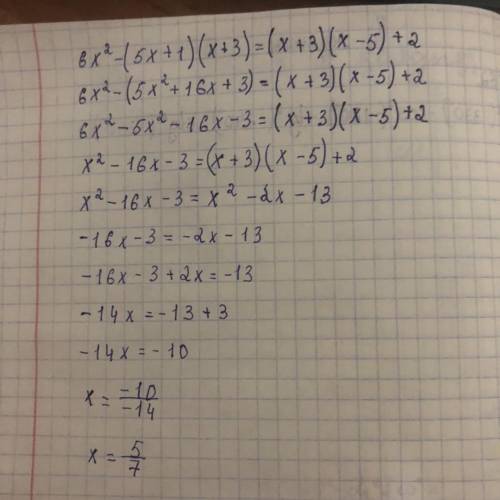 6x² - (5x + 1)(x + 3) = (x + 3)(x - 5) + 2
6x² - (5x² + 16x + 3) = (x + 3)(x - 5) + 2
6x² - 5x² - 16x - 3 = (x + 3)(x - 5) + 2
x² - 16x - 3 = (x + 3)(x - 5) + 2
x² - 16x - 3 = x² - 2x - 13
-16x - 3 = -2x - 13
-16x - 3 + 2x = -13
-14x = -13 + 3
-14x = -10
x = -10/-14
x = 5/7